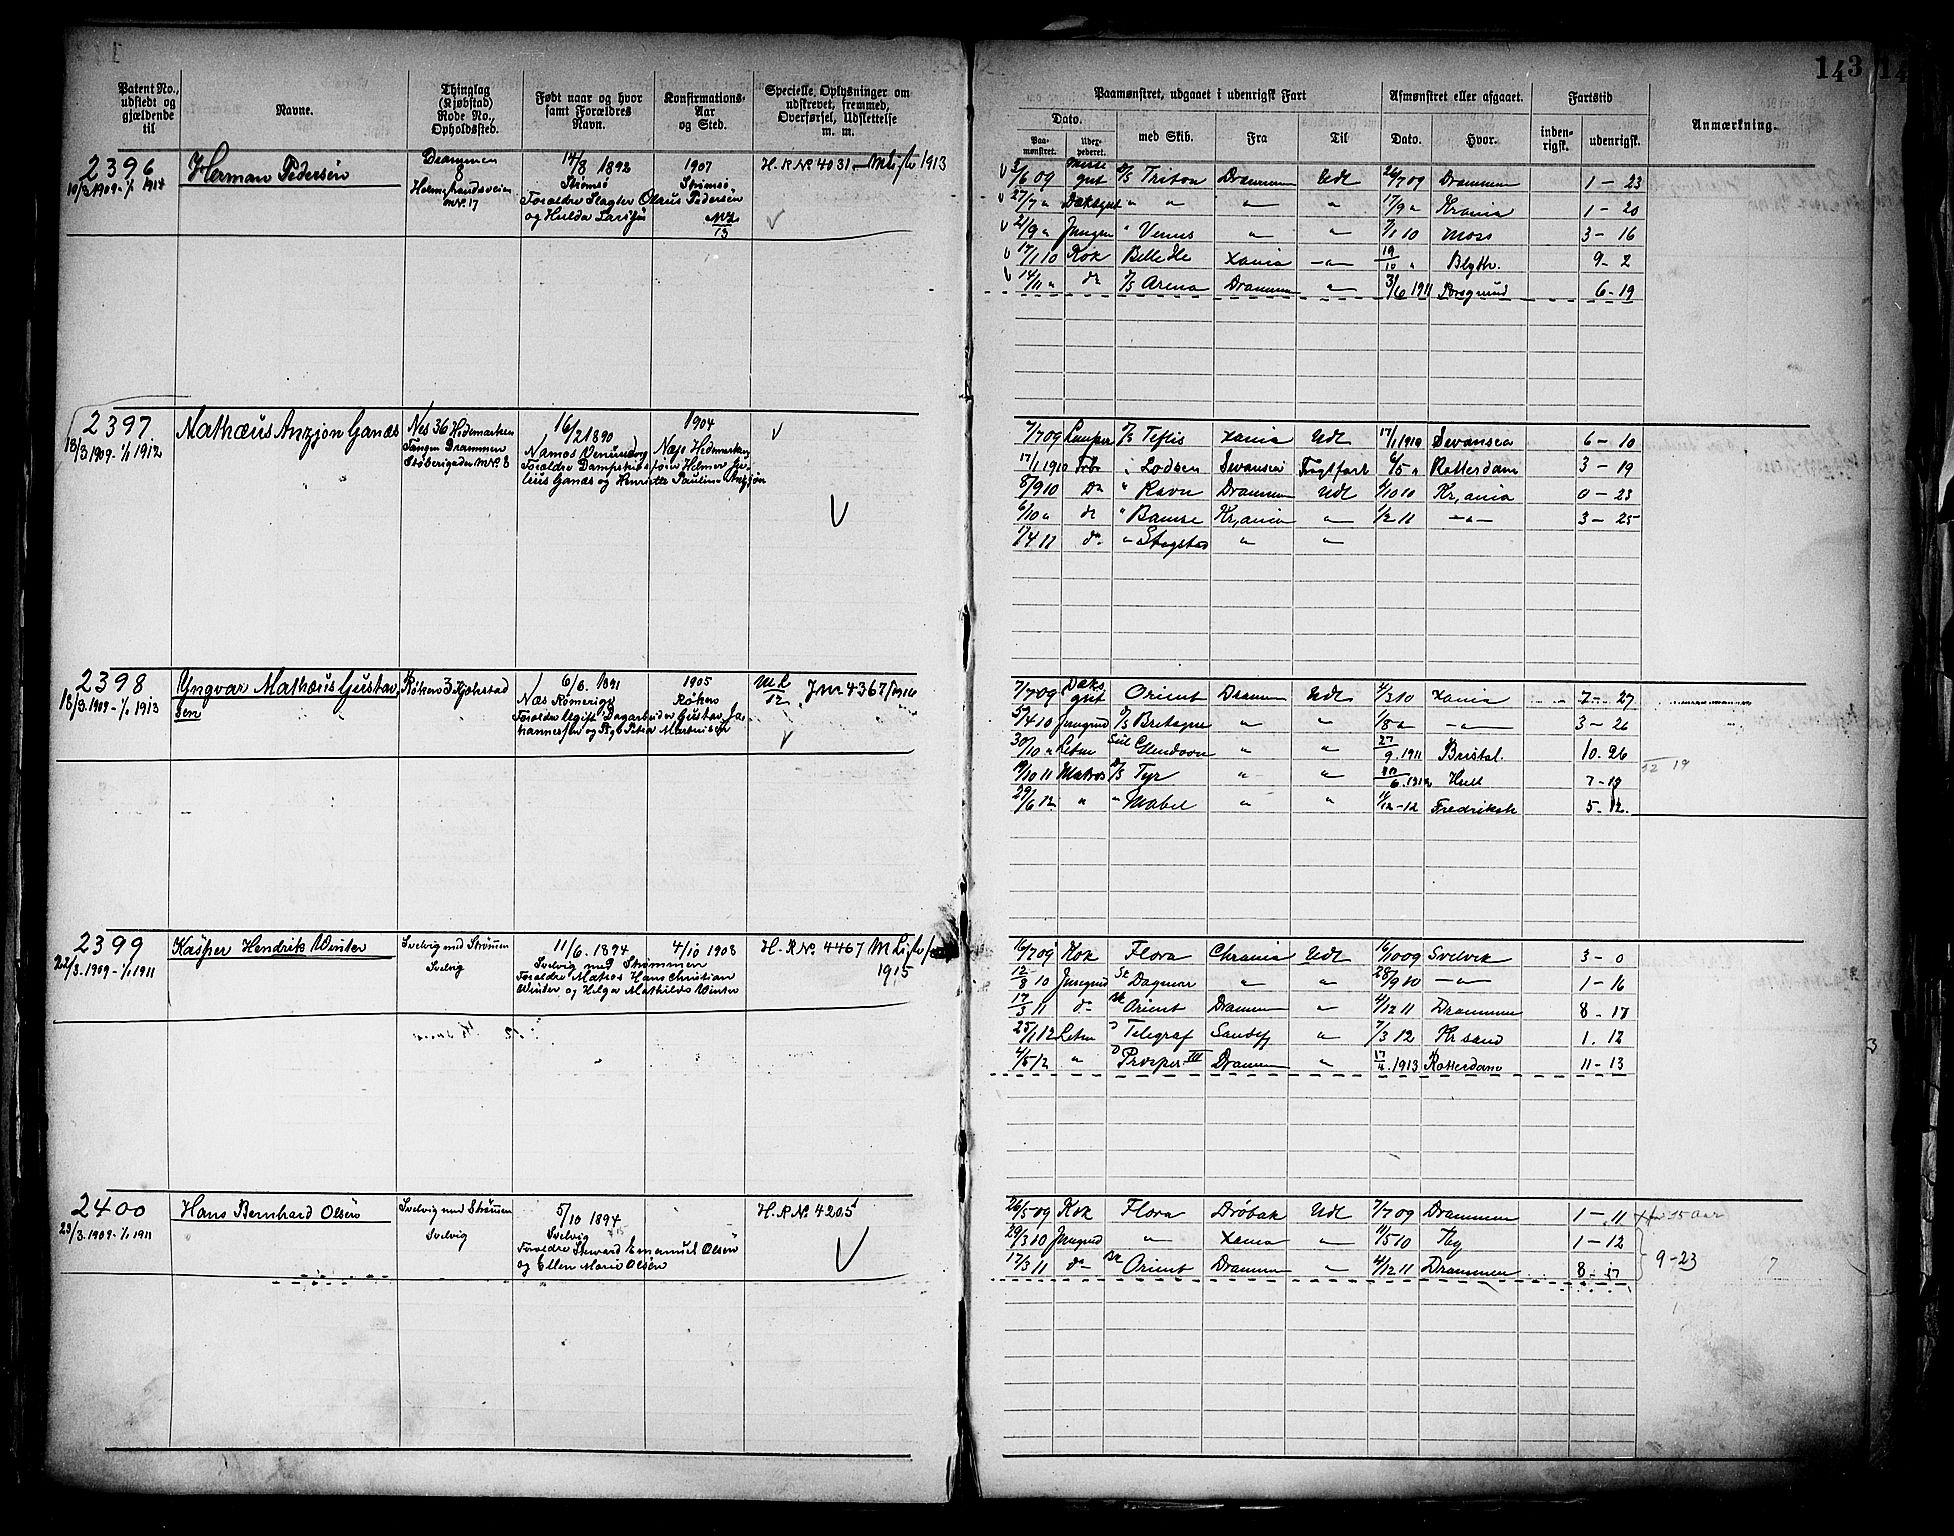 143
Patent No., udstedt og gjældende til
Navne.
Thinglag (Kjøbstad) Rode No., Opholdssted.
Født naar og hvor samt Forældres Navn.
Konfirmations- Aar og Sted.
Specielle Oplysninger om udskrevet, fremmed, Overførsel, Udslettelse m. m.
Paamønstret, udgaaet i udenrigsk Fart
Dato.
Paamønstret.
med Skib.
Fra
Til
Afmønstret eller afgaaet.
Dato.
Hvor.
Fartstid
indenrigsk.
udenrigsk.
Anmærkning.
2396 Herman Pedersen Drammen 8 14/8 1892 1907 H.R.Nº 4031
10/3 1909 - 1/1 1914 Holmestrandsveien Nr. 17 Strømsø Strømsø 1913
Forældre Slagter Olaus Pedersen
og Hulda
2/6 09 d/s Triton Drammen Udl 26/7 09 Drammen 1 - 23
27/7 " Dæksgut " " " " 17/9 " Krania 1 - 20
21/9 " Jungm " Venus " " 7/1 10 Moss 3 - 16
17/1 10 Kok Belle Ile Xania " 19/10 " Blyth. 9 - 2
14/11 " do d/s Arena Drammen " 3/6 1911 6 - 19
2397 Mathæus Anzjøn Ganæs Nes 36 Hedemarken 16/2 1890 1904
18/3 1909 - 1/1 1912 Tangen Drammen Næs Hedemarken
Forældre
lius Ganæs og Henriette Pauline Anzjøn
7/7 09 Lemper d/s Teflis Xania Udl 17/1 1910 Swansea 6 - 10
17/1 1910 Fyrb " Lodsen Swansea Fragtfart 6/5 " Rotterdam 3 - 19
8/9 10 do " Ravn Drammen Udl 4/10 10 Kr,ania 0 - 23
6/10 " do " Bamse Kr,ania " 1/2 11 - " - 3 - 25
1/4 11 do " Skogstad " "
2398 Yngvar Mathæus Gustav- Røken 3 Kjekstad 6/8. 1891 1905 M.L. 12 J.M 4367/1916
18/3. 1909 - 1/1 1913 sen Næs Romerige Røken
Forældre Ugift Dagarbeider Gustav Jo-
hannessen og Pige Petra Martinisen
7/7 09 Dæksgut Orient Drammen Udl 4/3 10 Xania 7 - 27
5/4 10 Jungmd d/s Bretagne " " 1/8 " - " - 3 - 26
30/10 " Letm Glendoon " " 27/9. 1911 Bristol. 10. 26
19/10 11 Matros d/s Tyr " " 6. 1912 Hull 7 - 19
29/6 12. " " Mabel " " 11/12 - 12 Fredriksh 5 - 12.
52 19
2399 Kasper Hendrik Winter Svelvig med Strømmen 11/6. 1894 4/10 1908 H.R.Nº 4467
22/3. 1909 - 1/1 1911 Svelvig Svelvig med Strømmen 1915
Forældre Matros Hans Christian
Winter og Helga Mathilde Winter
16/7 09 Kok Flora Chrania Udl 16/10 09 Svelvik 3 - 0
12/8 10 Jungmd Sk Dagmar " " 28/9 10 - " - 1 - 16
17/3 11 do Bk Orient Drammen " 4/12 11 Drammen 8 - 17
25/1 12 Letm D Telegraf Sandefj " 7/3 12 Kr sand 1. 12
4/5 12 " D Prosper III Drammen " 17/4. 1913 Rotterdam 11 - 13
2400 Hans Bernhard Olsen Svelvig med Strømmen 5/10 1894 H.R.Nº 4205
23/3. 1909 - 1/1 1911 Svelvig Svelvig
Forældre Emanuel Olsen
og Ellen Marie Olsen
26/5 09 Kok Flora Drøbak Udl 7/7 09 Drammen 1 - 11
29/3 10 Jungmd " Xania " 11/5 10 1 - 12
17/3 11 do Bk Orient Drammen " 4/12 11 Drammen 8 - 17
9 - 23
7